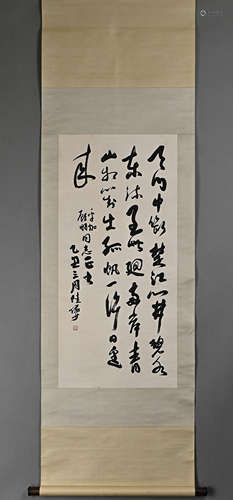 天门中断楚江開碧水
東流至此廻两岸青
山相对出孤帆一片日边
来
同志正
乙丑三月陸儼少